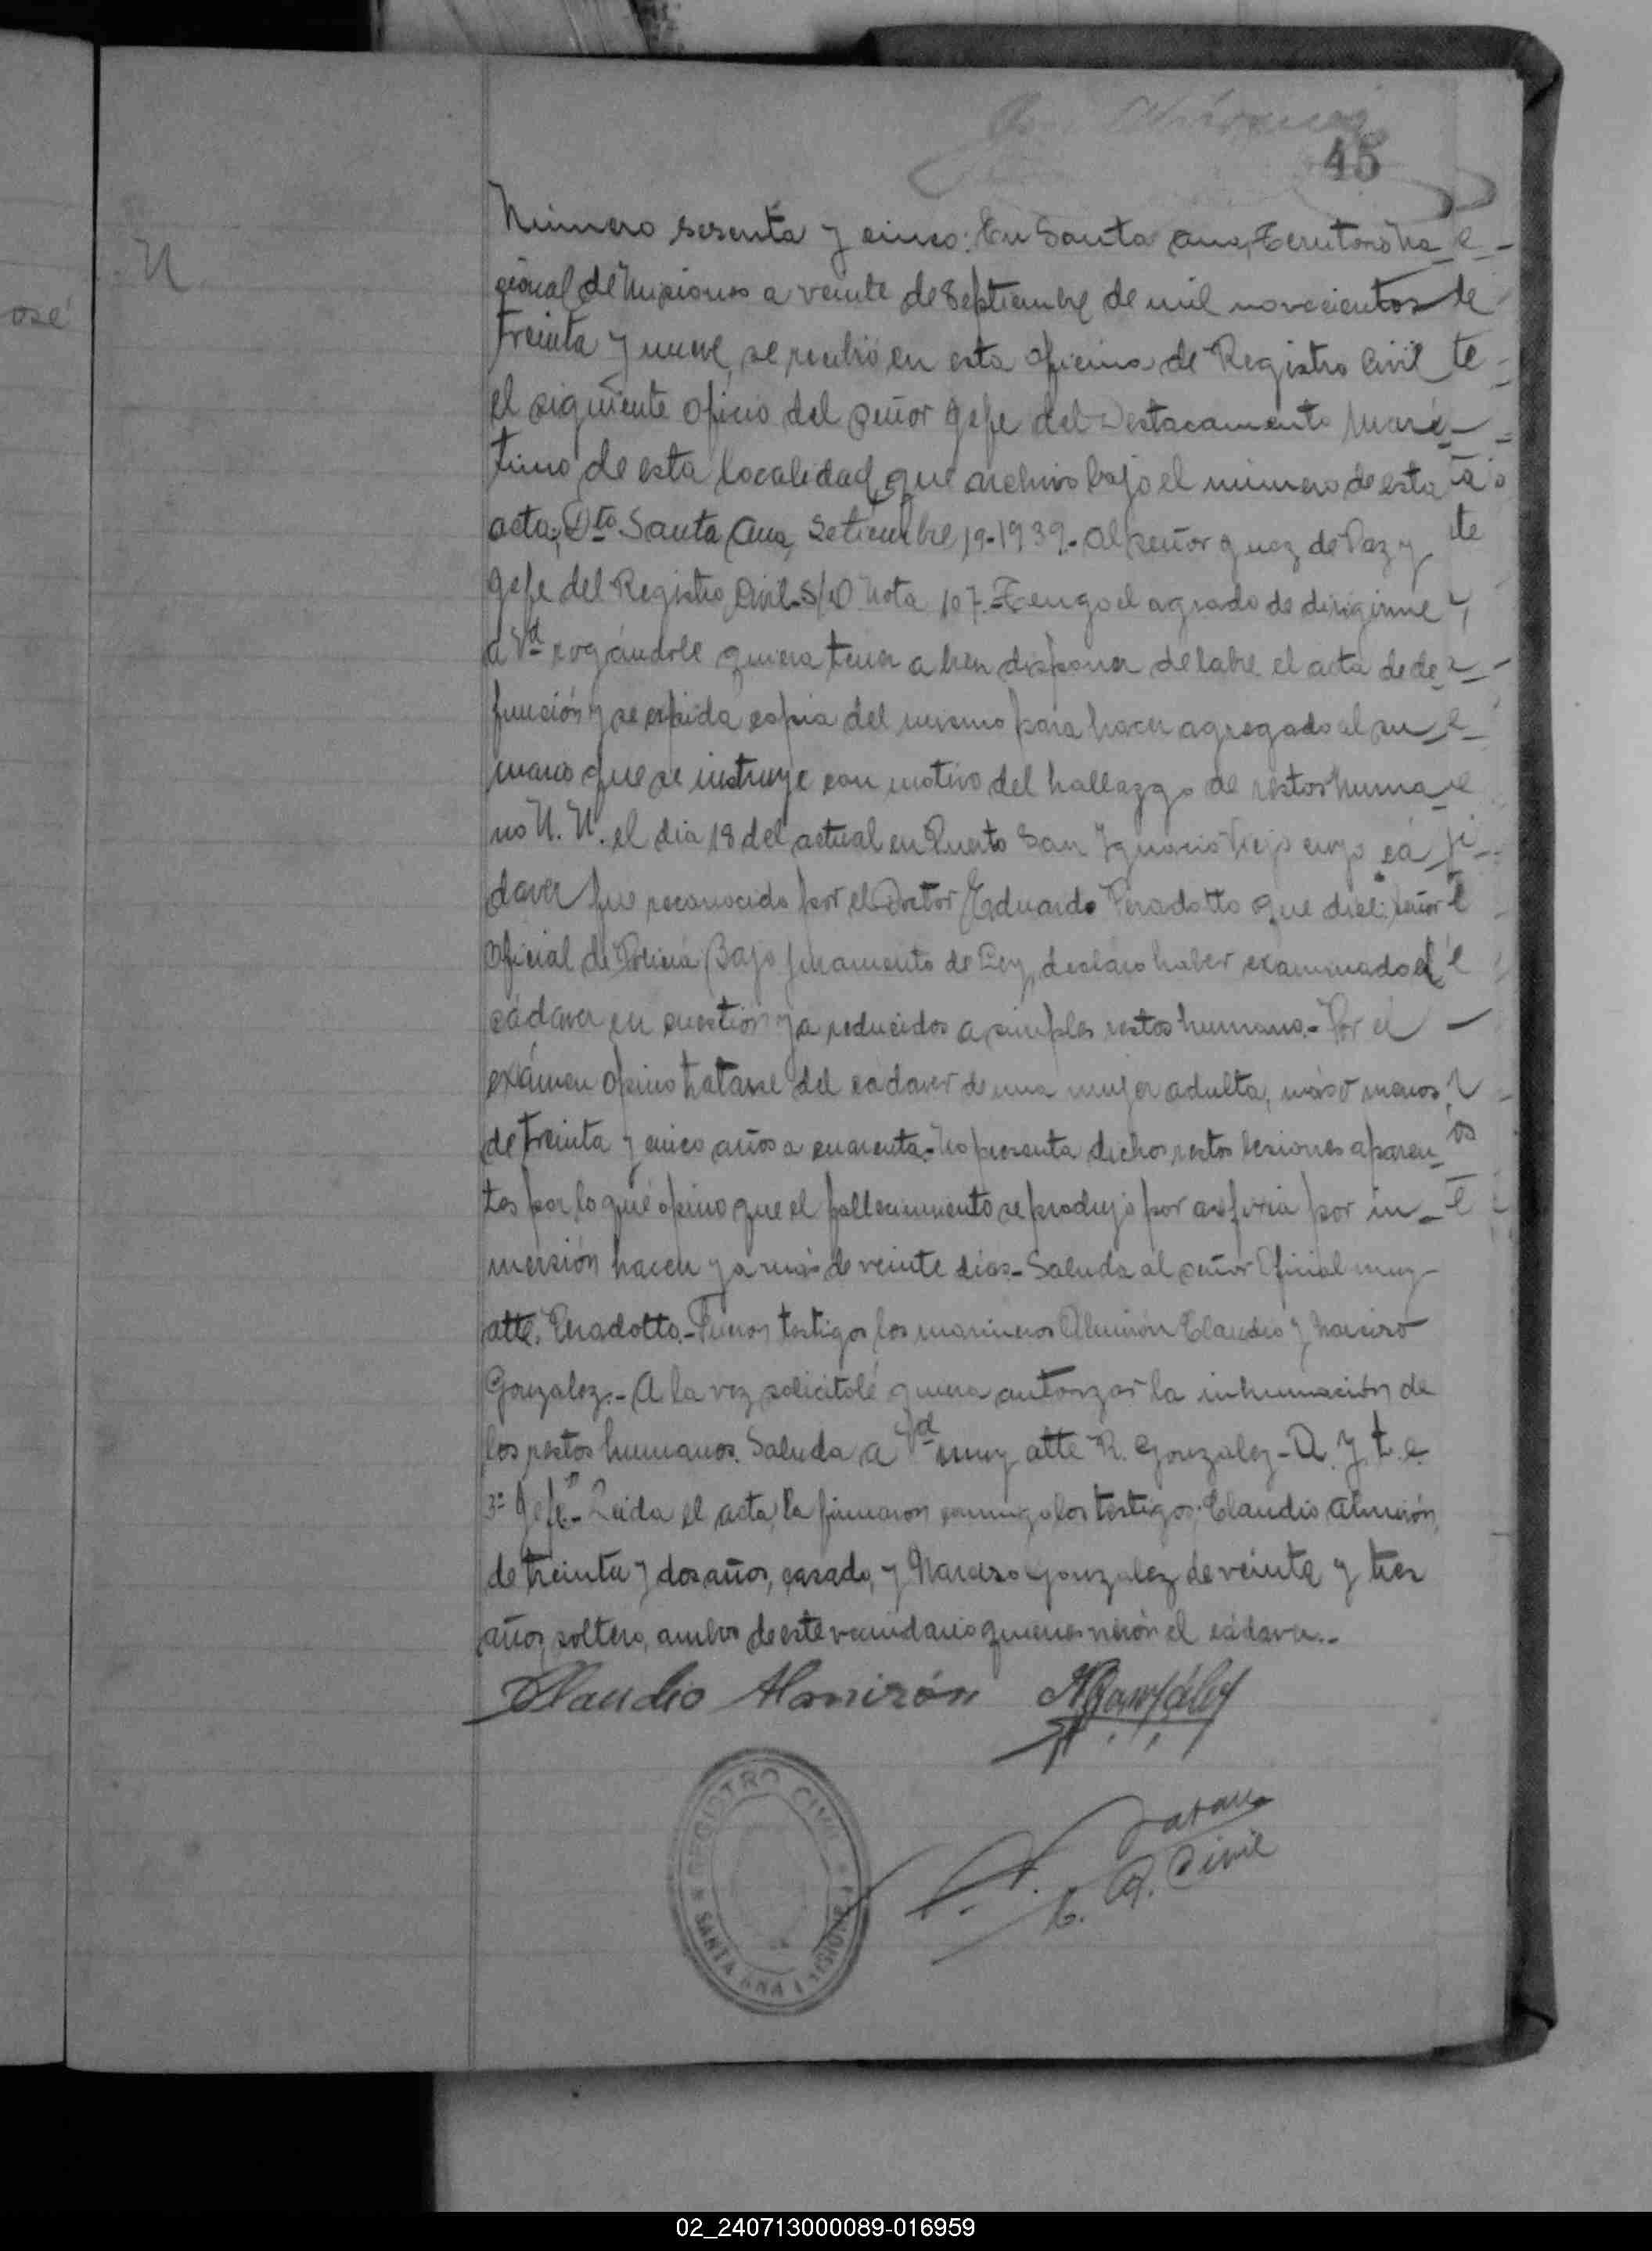 45
N
osé
Número sesenta y cinco: En Santa Ana, Territorio Na
cional de Misiones a veinte de Septiembre de mil novecientos
treinta y nueve, se recibió en esta oficina de Registro Civil
el siguiente oficio del señor Gefe del Destacamento Marí-
timo de esta localidad, que archivo bajo el número de esta
acta; Dto. Santa Ana, Setiembre 19-1939.- Al señor Juez de Paz y
Gefe del Registro Civil-S/D Nota 107.-Tengo el agrado de dirigirme
a Vd rogándole quiera tener a bien disponer se labre el acta de de
función y se expida copia del mismo para hacer agregado al su
mario que se instruye con motivo del hallazgo de restos huma
no N. N. el dia 18 del actual en Puerto San Ignacio Viejo cuyo cá
daver fue reconocido por el Doctor Eduardo Peradotto que dice: señor
oficial de Policía Bajo juramento de Ley, declaro haber examinado el
cádaver en cuestión ya reducidos a simples restos humano.- Por el
exámen opino tratarse del cadaver de una mujer adulta, más o menos
de treinta y cinco años a cuarenta.-No presenta dichos restos lesiones aparen
tes por lo qué opino que el fallecimiento se produjo por asfixia por in-
mersión hacen ya más de veinte dias.- Saluda al señor Oficial muy
atte. Peradotto.-Fueron testigos los marineros Almirón Claudio y Narciso
Gonzalez.- A la vez solicitolé quiera autorizar la inhumación de
los restos humanos. Saluda a Vd muy atte R. Gonzalez- A. y t. e.
3º Gefe"- Leida el acta, la firmaron conmigo los testigos: Claudio Almirón,
de treinta y dos años, casado, y Narciso Gonzalez de veinte y tres
años, soltero, ambos de este vecindario quienes vierón el cádaver.-
Claudio Almirón NGonzález
R. Civil
REGISTRO CIVIL
SANTA ANA MISIONES
02_240713000089-016959